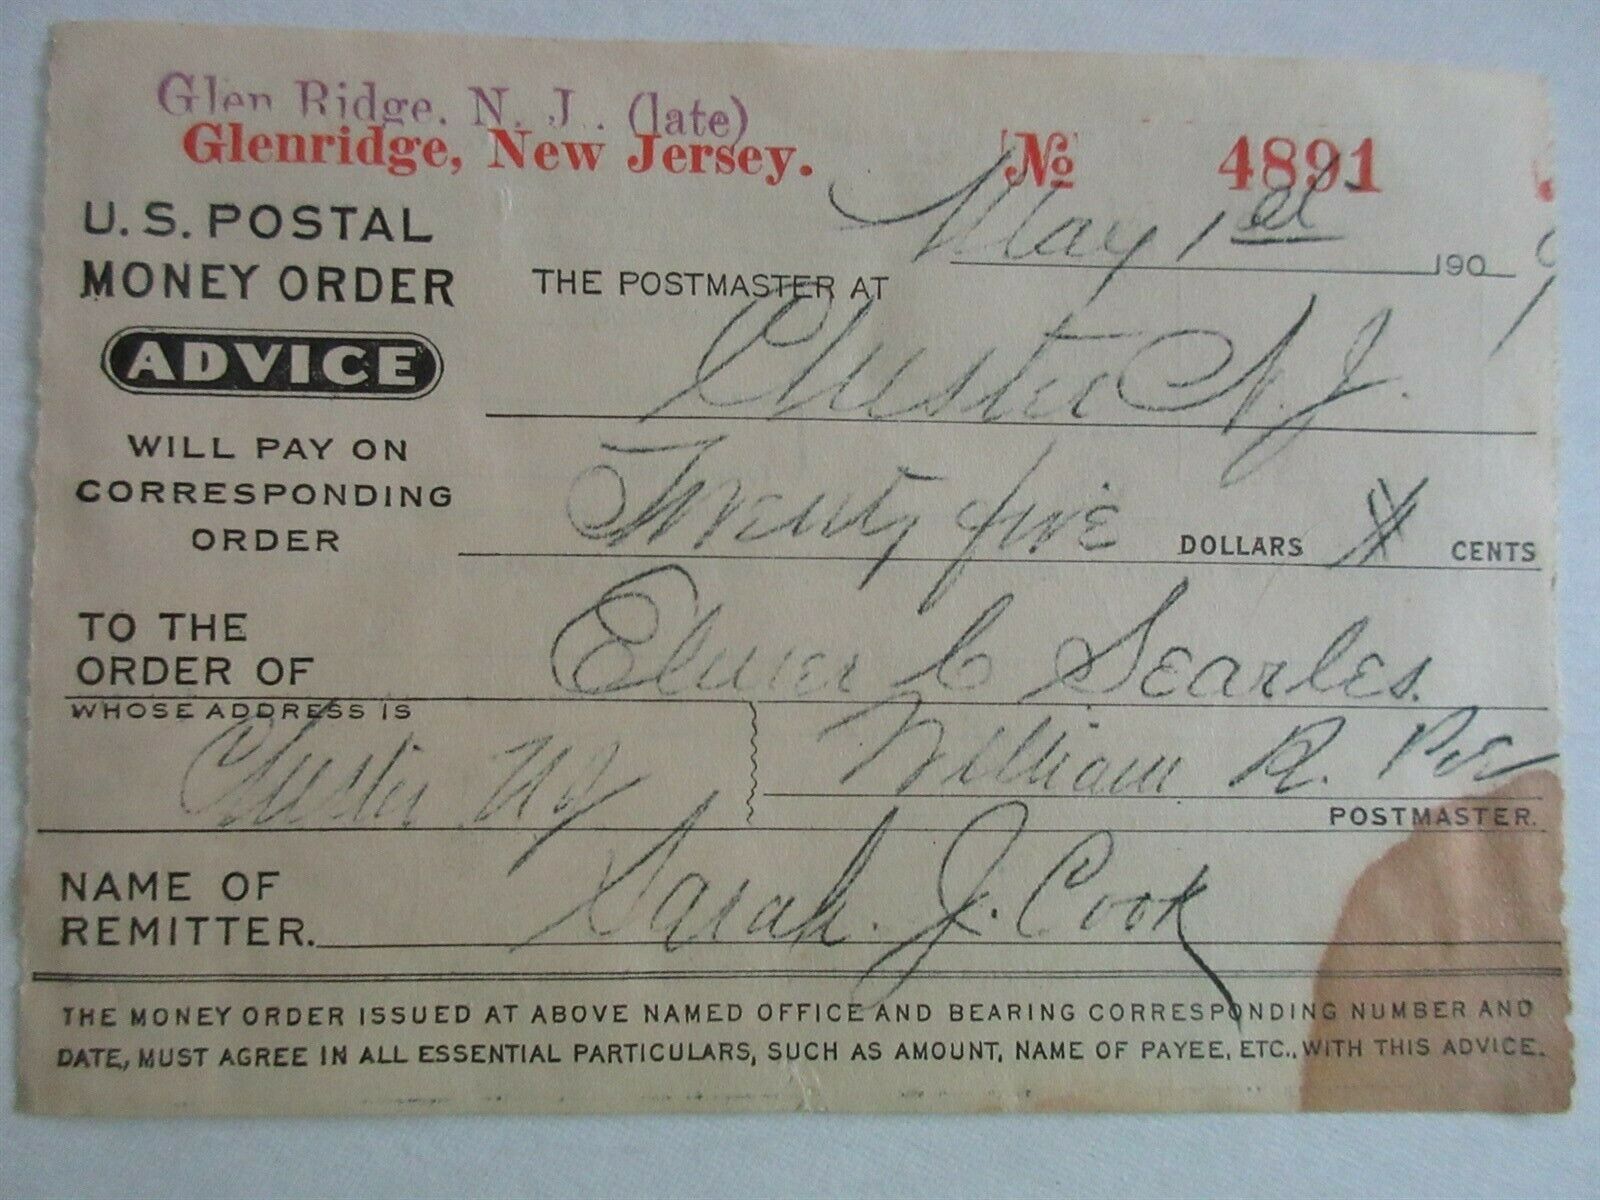 Glen Ridge, N. J., (late)
Glenridge, New Jersey.
No 4891
U.S. POSTAL
MONEY ORDER
ADVICE
WILL PAY ON
CORRESPONDING
ORDER
May 1st 1909
THE POSTMASTER AT
Chester N. J.
Twenty five DOLLARS CENTS
TO THE
ORDER OF Elmer C Searles.
WHOSE ADDRESS IS
Chester N J
William R.
POSTMASTER.
NAME OF
REMITTER. Sarah. J. Cook
THE MONEY ORDER ISSUED AT ABOVE NAMED OFFICE AND BEARING CORRESPONDING NUMBER AND
DATE, MUST AGREE IN ALL ESSENTIAL PARTICULARS, SUCH AS AMOUNT, NAME OF PAYEE, ETC., WITH THIS ADVICE.